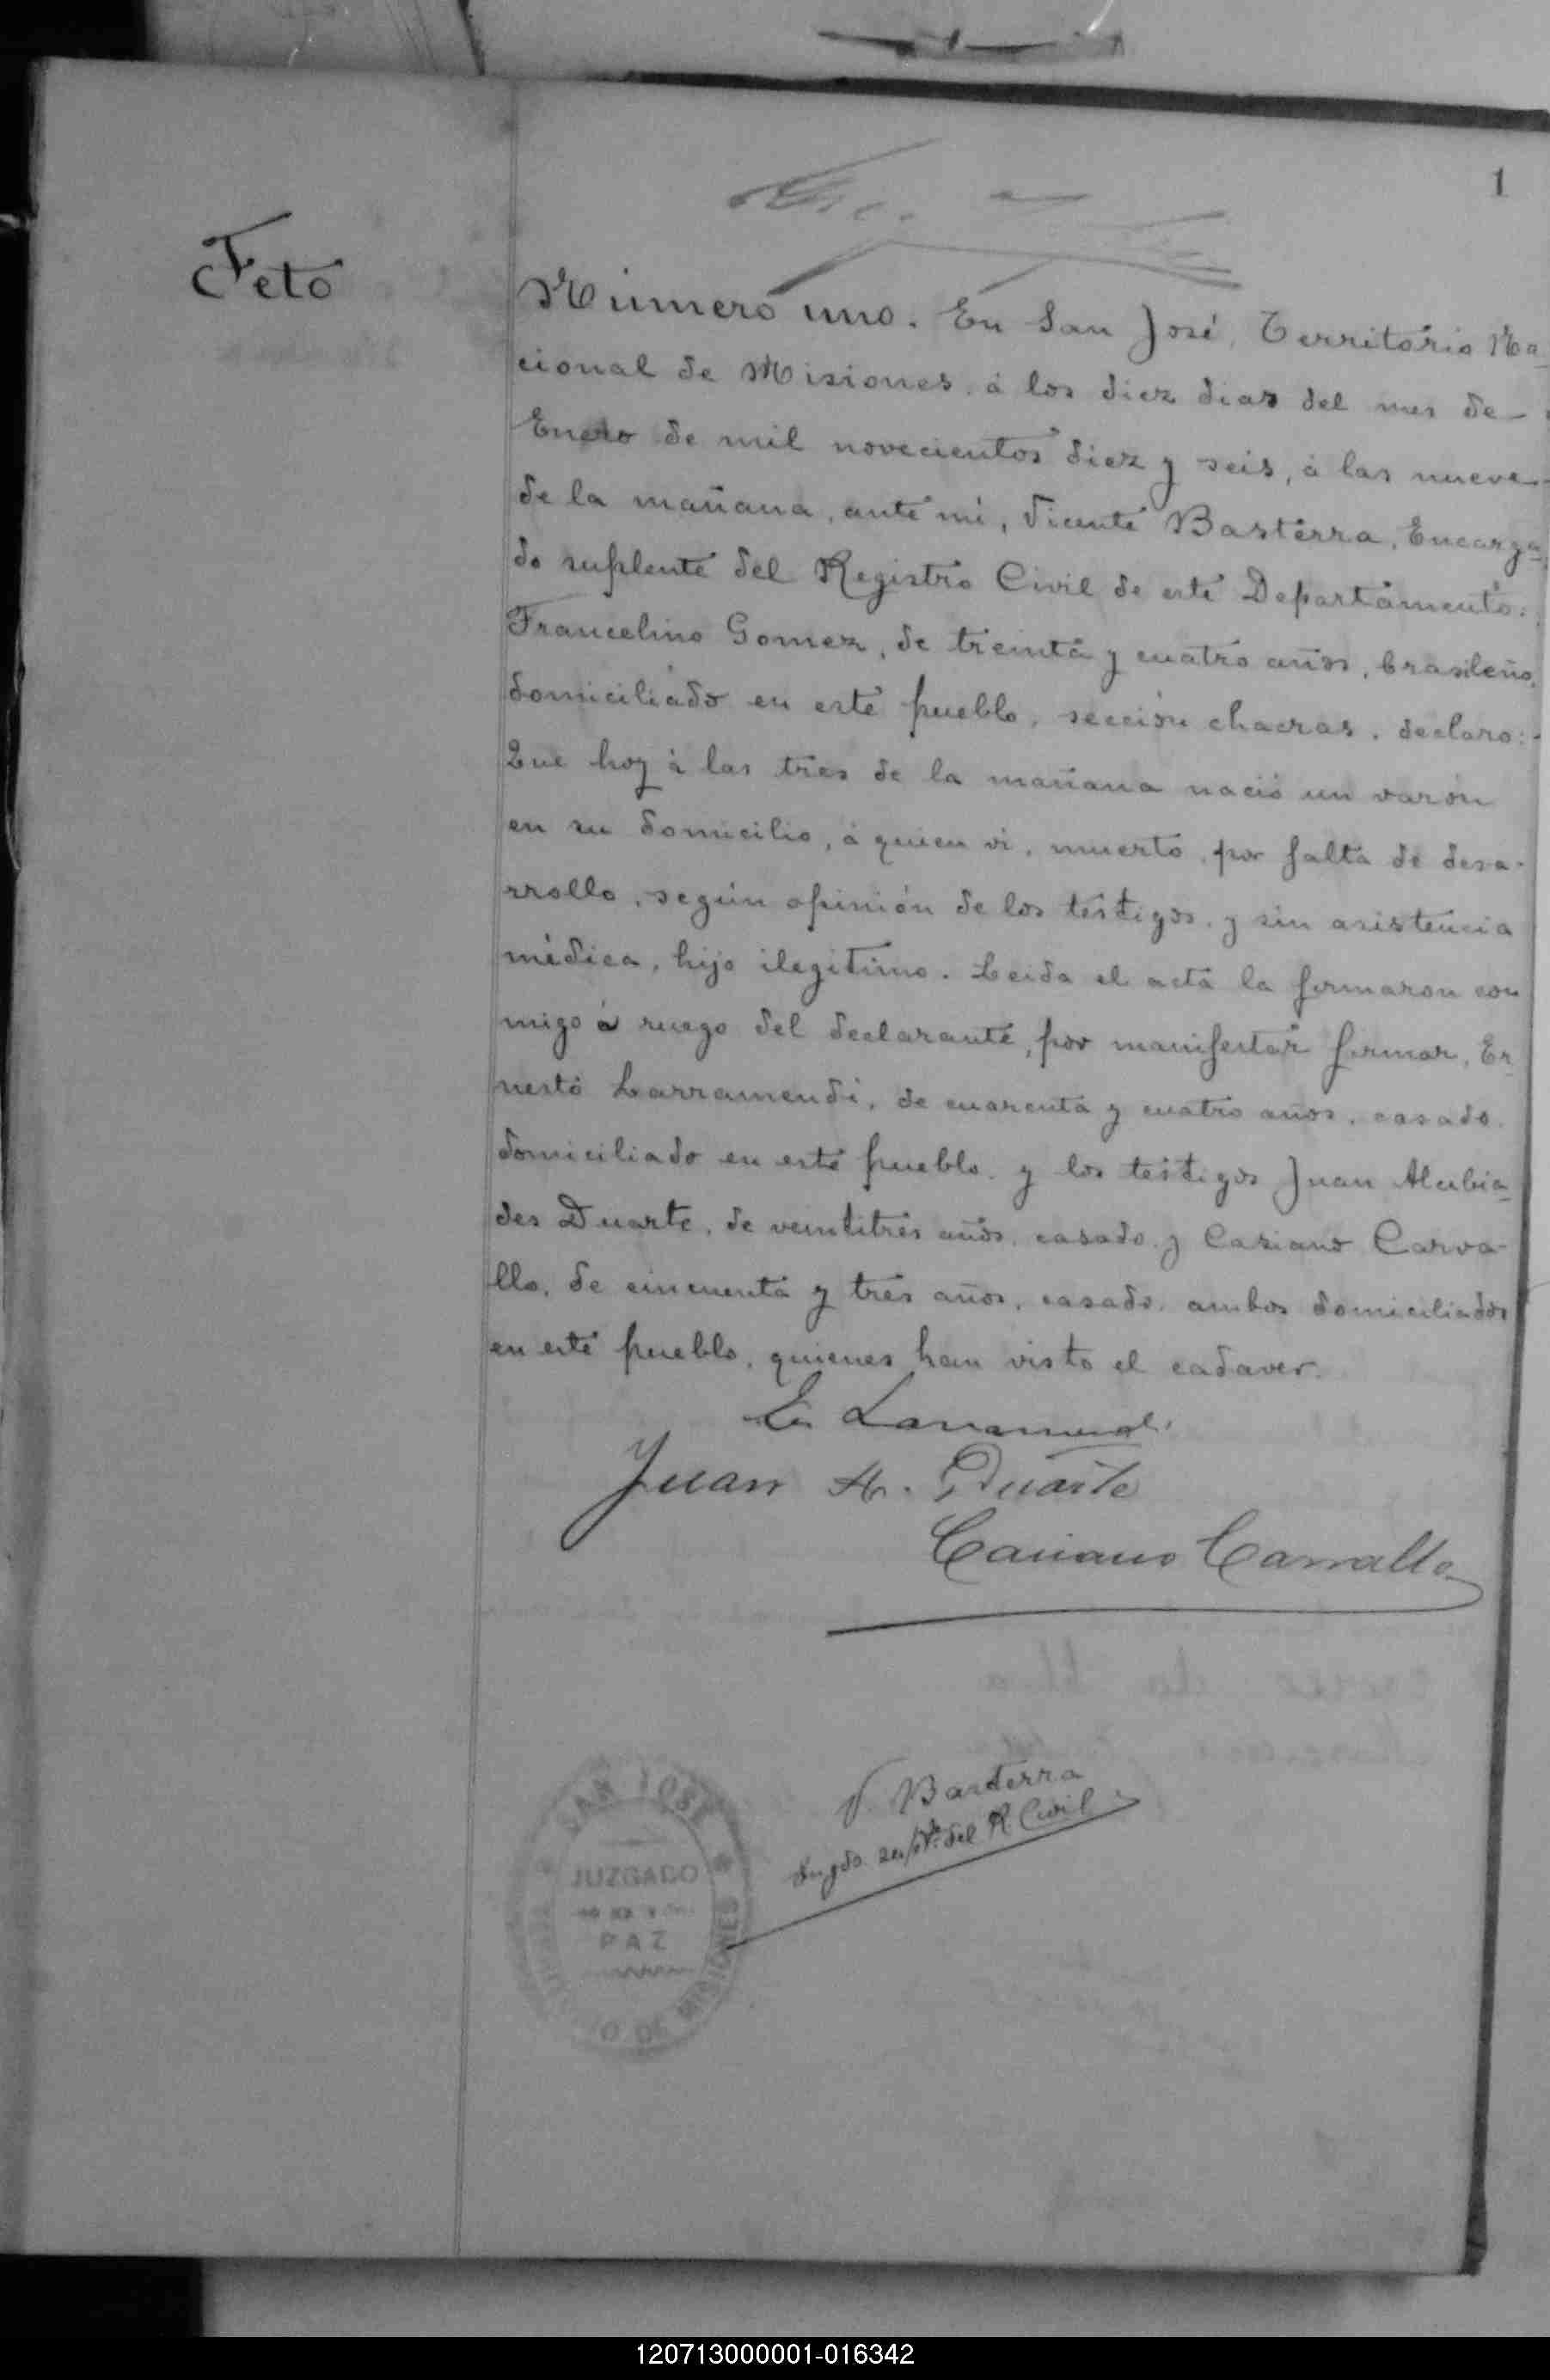 1
Feto
Número uno. En San José, Territorio Na-
cional de Misiones, á los diez dias del mes de
Enero de mil novecientos diez y seis, á las nueve
de la mañana, ante mi, Vicente Basterra, Encarga-
do suplente del Registro Civil de este Departamento:
Francelino Gomez, de treinta y cuatro años, brasileño,
domiciliado en este pueblo, sección chacras, declaro:-
Que hoy á las tres de la mañana nació un varón
en su domicilio, á quien vi, muerto, por falta de desa-
rrollo, según opinión de los testigos, y sin asistencia
médica, hijo ilegitimo. Leida el acta la firmaron con
migo á ruego del declarante, por manifestar firmar, Er-
nesto Larramendi, de cuarenta y cuatro años, casado,
domiciliado en este pueblo, y los testigos Juan Alcibia-
des Duarte, de veintitrés años, casado, y Casiano Carva-
llo, de cincuenta y tres años, casado, ambos domiciliados
en este pueblo, quienes han visto el cadaver.
E. Larramendi
Juan A. Duarte
Casiano Carvallo
V. Basterra
Engdo. supte. del R. Civil
SAN JOSÉ
JUZGADO
PAZ
TERRITORIO DE MISIONES
120713000001-016342